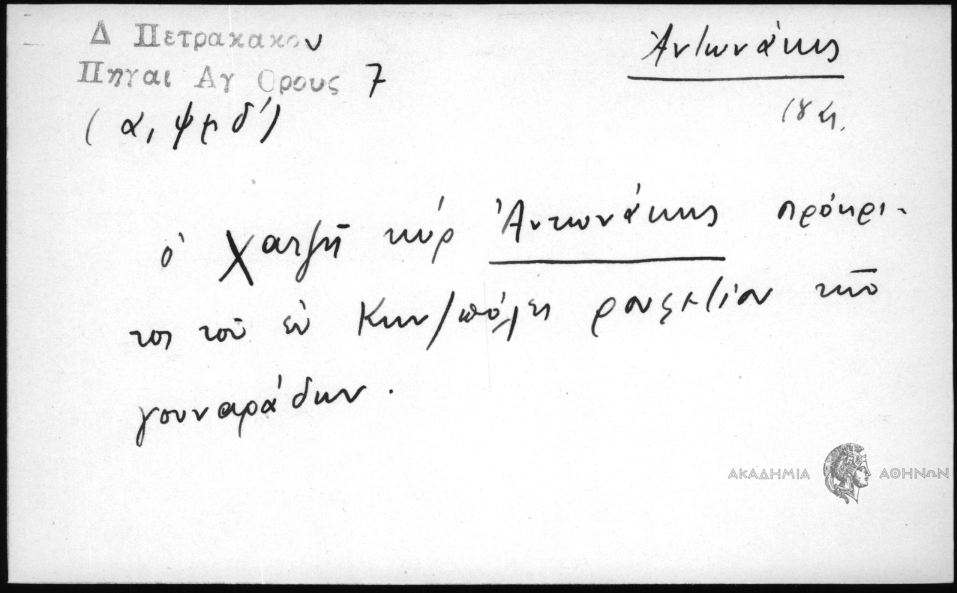 Δ Πετρακακου
Πηγαι Αγ Ορους 7
(α, ψμδ')
Ἀντωνάκης
18 αι.
ὁ Χατζῆ κύρ Ἀντωνάκης πρόκρι-
τος τοῦ ἐν Κων/πόλει ρουφετίου τῶν
γουναράδων.
ΑΚΑΔΗΜΙΑ ΑΘΗΝΩΝ